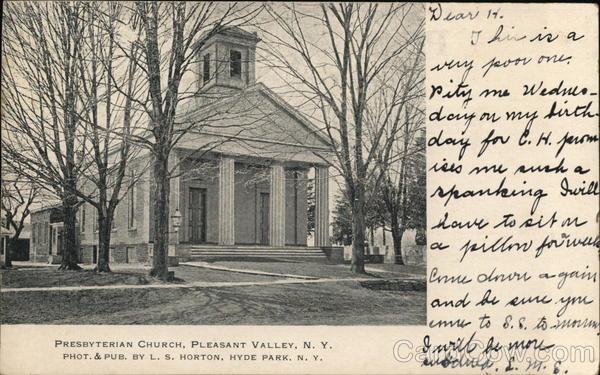 Dear H.
This is a
very poor one.
Pity me Wednes-
day on my birth-
day for C. H. prom
ises me such a
spanking I will
have to sit on
a pillow for a week
Come down again
and be sure you
come to S.S. to morrow
I will be more
subdued. L. M. E.
PRESBYTERIAN CHURCH, PLEASANT VALLEY, N. Y.
PHOT. & PUB. BY L. S. HORTON, HYDE PARK, N. Y.
CardCow.com